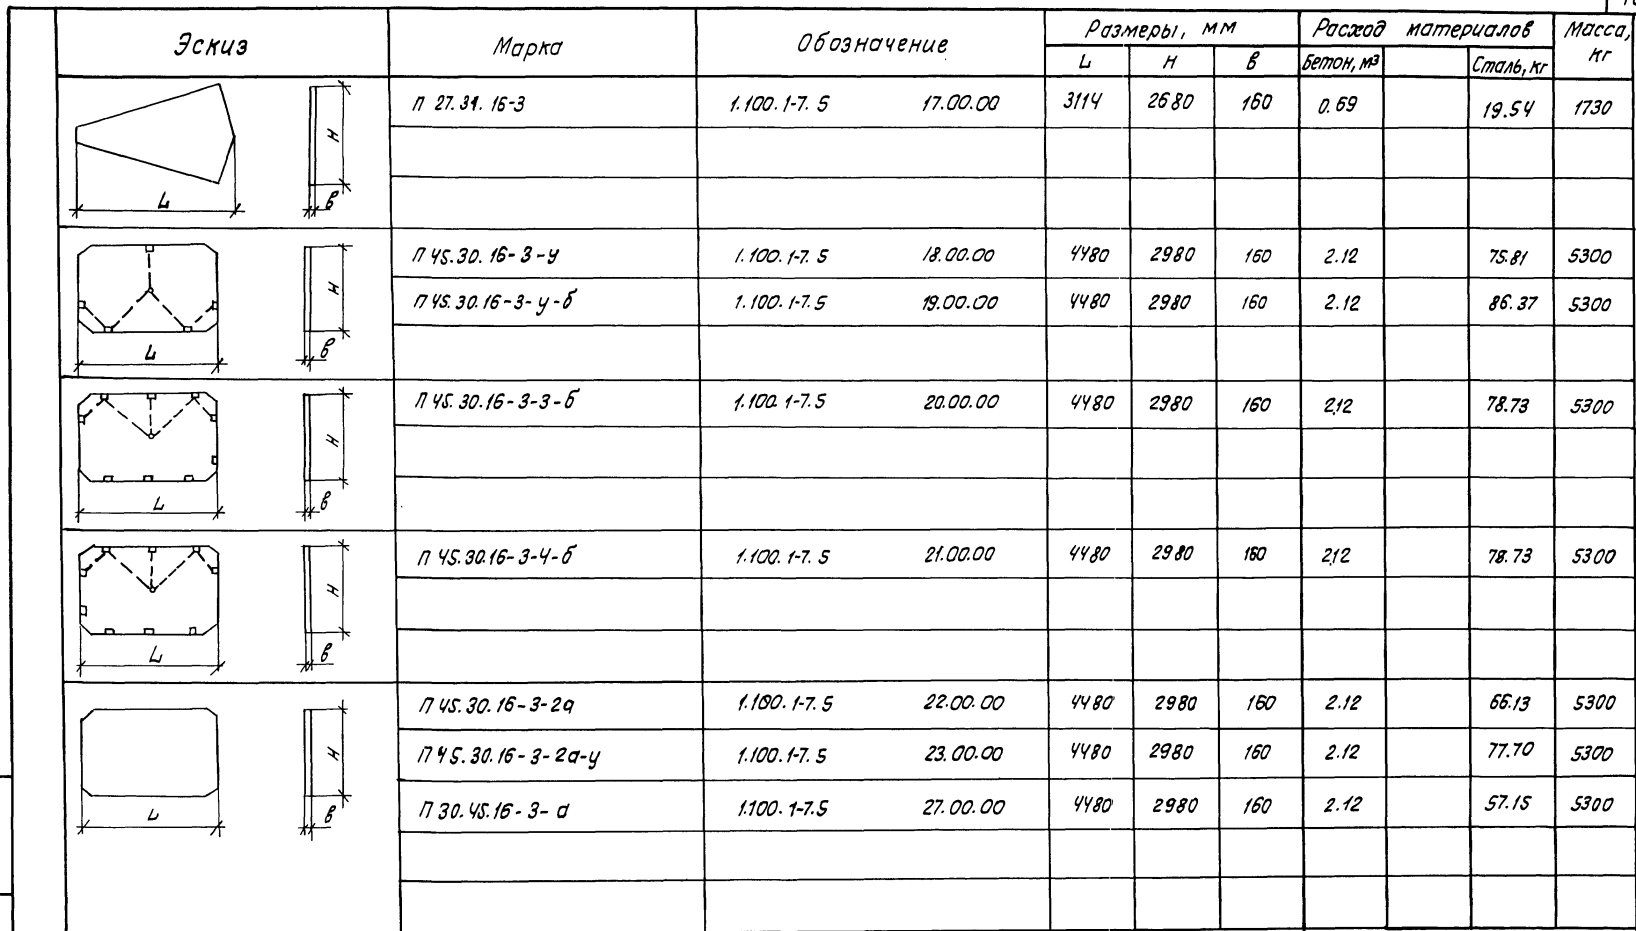 Эскиз Марка Обозначение Размеры, мм Расход материалов Масса, кг
L H в Бетон, м³ Сталь, кг
П 27.31.16-3 1.100.1-7.5 17.00.00 3114 2680 160 0.69 19.54 1730
H
L в
П 45.30.16-3-у 1.100.1-7.5 18.00.00 4480 2980 160 2.12 75.81 5300
H
П 45.30.16-3-у-б 1.100.1-7.5 19.00.00 4480 2980 160 2.12 86.37 5300
L в
П 45.30.16-3-3-б 1.100.1-7.5 20.00.00 4480 2980 160 2,12 78.73 5300
H
L в
П 45.30.16-3-4-б 1.100.1-7.5 21.00.00 4480 2980 160 2,12 78.73 5300
H
L в
П 45.30.16-3-2а 1.100.1-7.5 22.00.00 4480 2980 160 2.12 66.13 5300
H
П 45.30.16-3-2а-у 1.100.1-7.5 23.00.00 4480 2980 160 2.12 77.70 5300
П 30.45.16-3-а 1.100.1-7.5 27.00.00 4480 2980 160 2.12 57.15 5300
L в